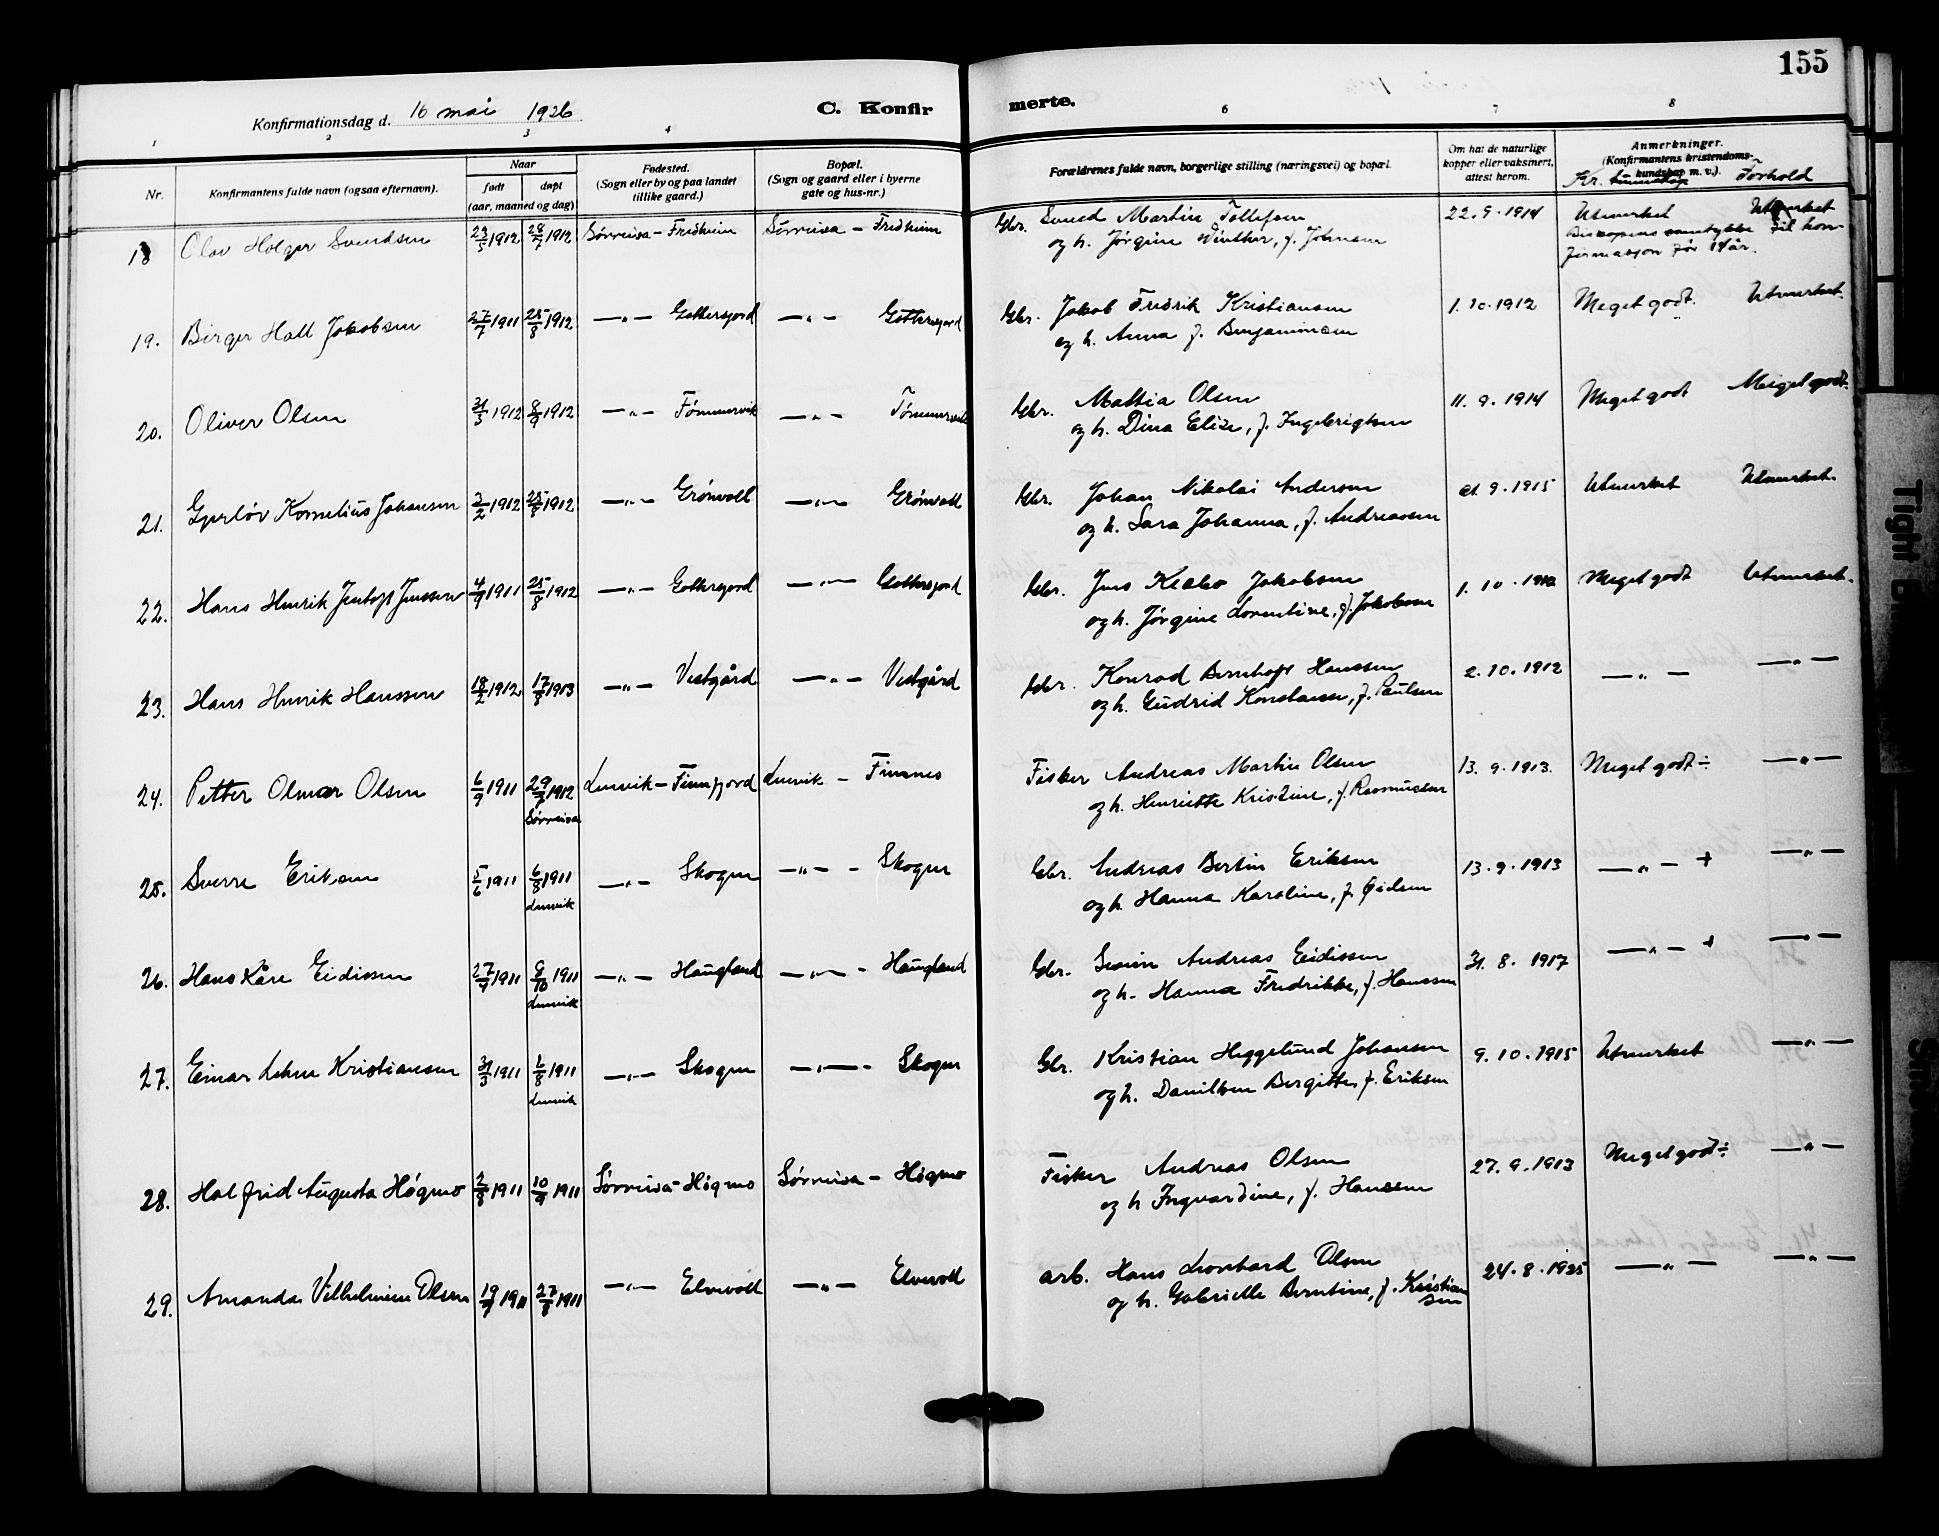 155
Konfirmationsdag d. 16 mai 1926
C. Konfirmerte.
1 2 3 4 6 7 8
Nr.
Konfirmantens fulde navn (ogsaa efternavn).
Naar
født
døpt
(aar, maaned og dag)
Fødested.
(Sogn eller by og paa landet
tillike gaard.)
Bopæl.
(Sogn og gaard eller i byerne
gate og hus-nr.)
Forældrenes fulde navn, borgerlige stilling (næringsvei) og bopæl.
Om hat de naturlige
kopper eller vaksinert,
attest herom.
Anmerkninger.
(Konfirmantens kristendoms-
kundskap m. v.).
Kr. kunnskap Forhold
18 Olav Holger Svendsen 23/5 1912 28/7 1912 Sørreisa - Fredheim Sørreisa - Fredheim Gbr. Svend Martin Tollefsen 22.9.1914 Utmerket Utmerket
og h. Jørgine Winther, f. Johnsen Biskopens samtykke til kon-
firmasjon før 14 år.
19. Birger Hall Jakobsen 27/7 1911 25/8 1912 —„— Gottersjord —„— Gottersjord Gbr. Jakob Fredrik Kristiansen 1.10.1912 Meget godt. Utmerket.
og h. Anna f. Benjaminsen
20. Oliver Olsen 31/3 1912 8/9 1912 —„— Tømmervik —„— Tømmervik Gbr. Mattia Olsen 11.9.1914 Meget godt Meiget godt.
og h. Dina Elise, f. Ingebrigtsen
21. Gjerløv Kornelius Johansen 3/2 1912 25/8 1912 —„— Grønvoll —„— Grønvoll Gbr. Johan Nikolai Andersen 21.9.1915 Utmerket Utmerket.
og h. Sara Johanna, f. Andreassen
22. Hans Henrik Jentoft Jenssen 4/9 1911 25/8 1912 —„— Gottersjord —„— Gottersjord Gbr. Jens Kielbo Jakobsen 1.10.1912 Meget godt Utmerket.
og h. Jørgine Lorentine, f. Jakobsen
23. Hans Henrik Hanssen 18/2 1912 17/8 1913 —„— Vestgård —„— Vestgård Gbr. Konrad Bernhoft Hanssen 2.10.1912 —„— —„—
og h. Gudrid Konstanse, f. Paulsen
24. Petter Olmar Olsen 6/9 1911 29/7 1912 Lenvik - Finnfjord Lenvik - Finnnes Fisker Andreas Martin Olsen 13.9.1913. Meget godt ÷ —„—
Sørreisa og h. Henriette Kristine, f. Rasmussen
25. Sverre Eriksen 5/6 1911 6/8 1911 —„— Skogen —„— Skogen Gbr. Andreas Bertin Eriksen 13.9.1913 —„— + —„—
Lenvik og h. Hanna Karoline, f.
26. Hans Kåre Eidissen 27/7 1911 8/10 1911 —„— Haugland —„— Haugland Gbr. Andreas Eidissen 31.8.1917 —„— + —„—
Lenvik og h. Hanna Fredrikke, f. Hanssen
27. Einar Lehn Kristiansen 31/3 1911 6/8 1911 —„— Skogen —„— Skogen Gbr. Kristian Heggelund Johansen 9.10.1915 Utmerket —„—
Lenvik og h. Danilsen Bergitte, f. Eriksen
28. Halfrid Augusta Høgmo 2/8 1911 10/9 1911 Sørreisa - Høgmo Sørreisa - Høgmo Fisker Andreas Olsen 27.9.1913 Meget godt ÷ —„—
og h Ingvardine, f. Hansen
29. Amanda Vilhelmine Olsen 19/7 1911 27/8 1911 —„— Elvevoll —„— Elvevoll arb. Hans Leonhard Olsen 24.8.1925 —„— —„—
og h. Gabrielle Berntine, f. Kristian
sen
Tight Bin